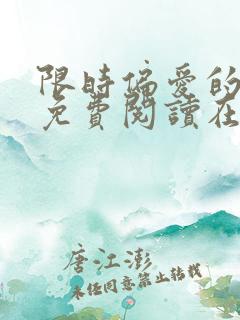 限時偏愛的
免費閱讀在
唐江澎
未经同意禁止转载